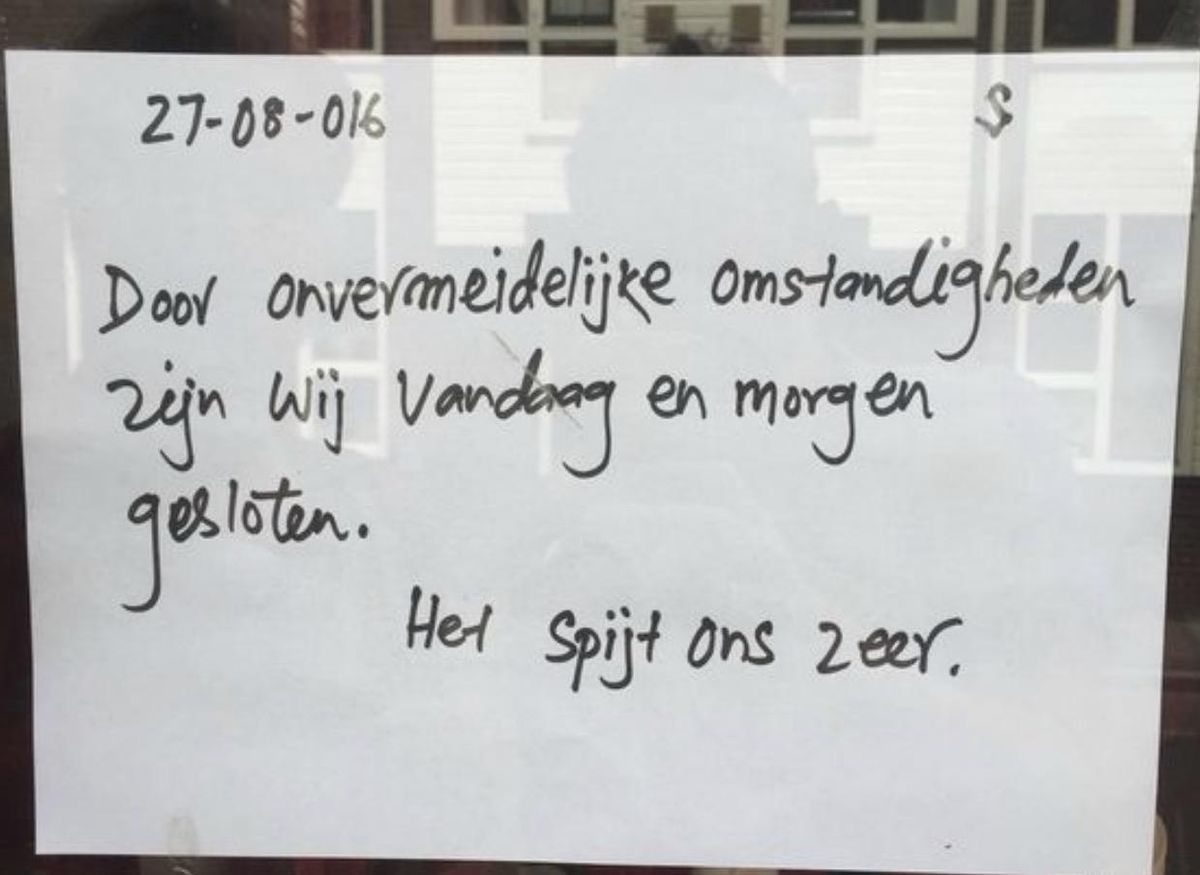 27-08-016 S
Door onvermeidelijke omstandigheden
zijn wij vandaag en morgen
gesloten.
Het spijt ons zeer.